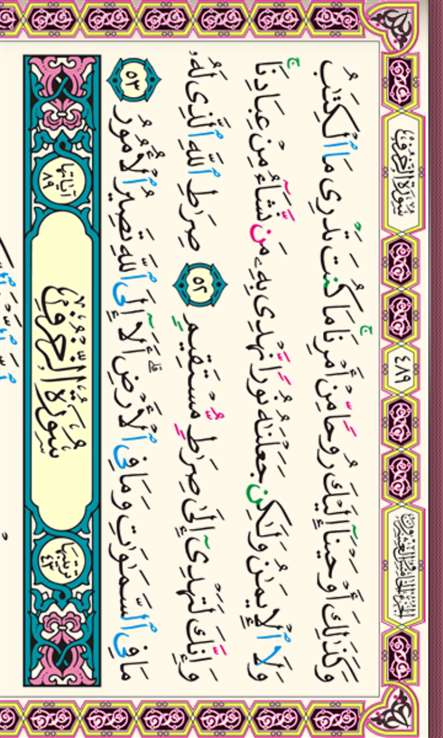 الجزء الخامس والعشرون ٤٨٩ سورة الزخرف
وَكَذَٰلِكَ أَوْحَيْنَآ إِلَيْكَ رُوحًا مِّنْ أَمْرِنَا مَا كُنتَ تَدْرِى مَا ٱلْكِتَٰبُ
وَلَا ٱلْإِيمَٰنُ وَلَٰكِن جَعَلْنَٰهُ نُورًا نَّهْدِى بِهِۦ مَن نَّشَآءُ مِنْ عِبَادِنَا
وَإِنَّكَ لَتَهْدِىٓ إِلَىٰ صِرَٰطٍ مُّسْتَقِيمٍ ٥٢ صِرَٰطِ ٱللَّهِ ٱلَّذِى لَهُۥ
مَا فِى ٱلسَّمَٰوَٰتِ وَمَا فِى ٱلْأَرْضِ أَلَآ إِلَى ٱللَّهِ تَصِيرُ ٱلْأُمُورُ ٥٣
ترتيبها ٤٣ سُورَةُ الزُّخْرُفِ آياتها ٨٩